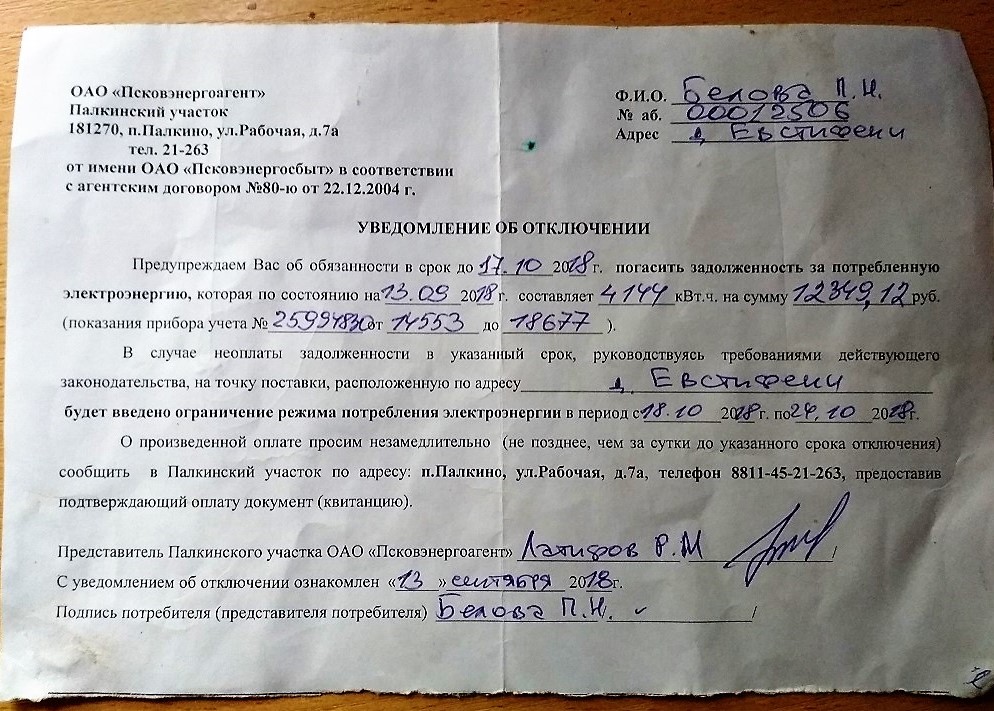 ОАО «Псковэнергоагент»
Палкинский участок
181270, п.Палкино, ул.Рабочая, д.7а
тел. 21-263
от имени ОАО «Псковэнергосбыт» в соответствии
с агентским договором №80-ю от 22.12.2004 г.
Ф.И.О. Белова П.Н.
№ аб. 00012506
Адрес д Евстифени
УВЕДОМЛЕНИЕ ОБ ОТКЛЮЧЕНИИ
Предупреждаем Вас об обязанности в срок до 17.10 2018 г. погасить задолженность за потребленную
электроэнергию, которая по состоянию на 13.09 2018 г. составляет 4144 кВт.ч. на сумму 12349,12 руб.
(показания прибора учета № 25994830 от 14553 до 18677 ).
В случае неоплаты задолженности в указанный срок, руководствуясь требованиями действующего
законодательства, на точку поставки, расположенную по адресу д. Евстифени
будет введено ограничение режима потребления электроэнергии в период с 18.10 2018 г. по 24.10 2018г.
О произведенной оплате просим незамедлительно (не позднее, чем за сутки до указанного срока отключения)
сообщить в Палкинский участок по адресу: п.Палкино, ул.Рабочая, д.7а, телефон 8811-45-21-263, предоставив
подтверждающий оплату документ (квитанцию).
Представитель Палкинского участка ОАО «Псковэнергоагент» Латифов Р.М /
С уведомлением об отключении ознакомлен «13 » сентября 2018г.
Подпись потребителя (представителя потребителя) Белова П.Н. /